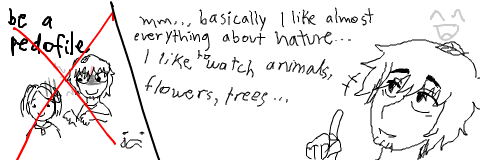 be a
pedofile
mm... basically I like almost
everything about nature...
I like to watch animals,
flowers, trees...